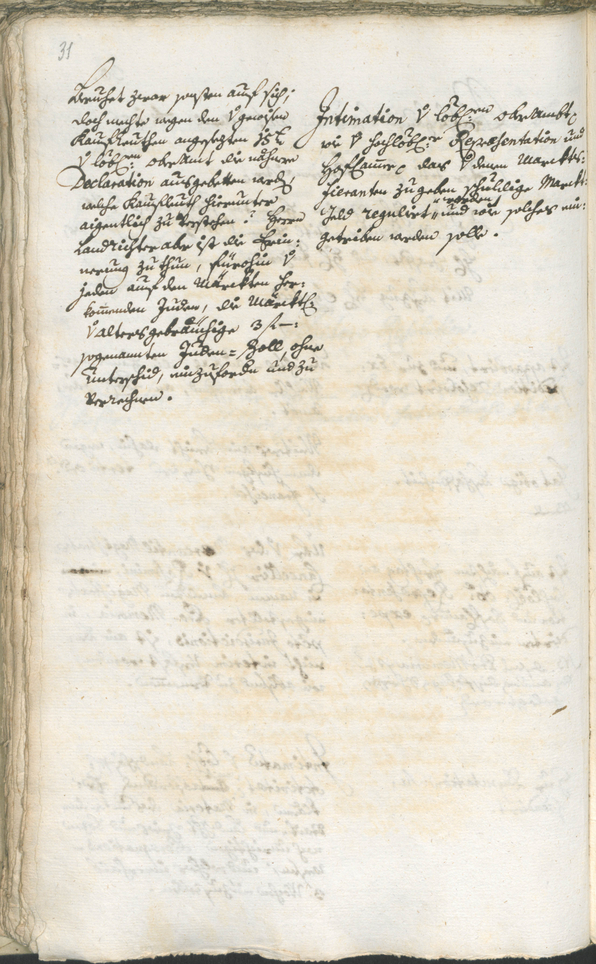 31
Beruhet zwar sonsten auf sich;
doch möchte wegen den V gnoißen
Kaufleuthen angesezten 15 x
V löbl: oberamt die nähere
Declaration ausgebetten werden,
welche Kaufleuth hierunter
aigentlich zu verstehen? Herrn
Landrichter aber ist die Erin:
nerung zu thun, fürohin V
jeden auf den Märckten her:
kommenden Juden, die Märckt
V altersgebräuchige 3 x
sogenannten Juden= Zoll, ohne
unterschid, einzufordern und zu
verrechnen.
Intimation V löbl: oberambt
wie V hochlöbl: Repræsentation und
Hofkammer das V denen Marckts:
fieranten zu geben schuldige Marckt:
Geld reguliert worden, und wie solches ein:
getriben werden solle.